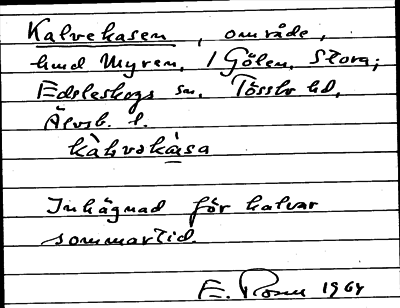 Kalvekasen, område,
hmd Myren, 1 Gölen, Stora;
Edsleskogs sn. Tössbo hd,
Älvsb. l.
kàlvekàsa
Inhägnad för kalvar
sommartid.
E. Rosén 1964